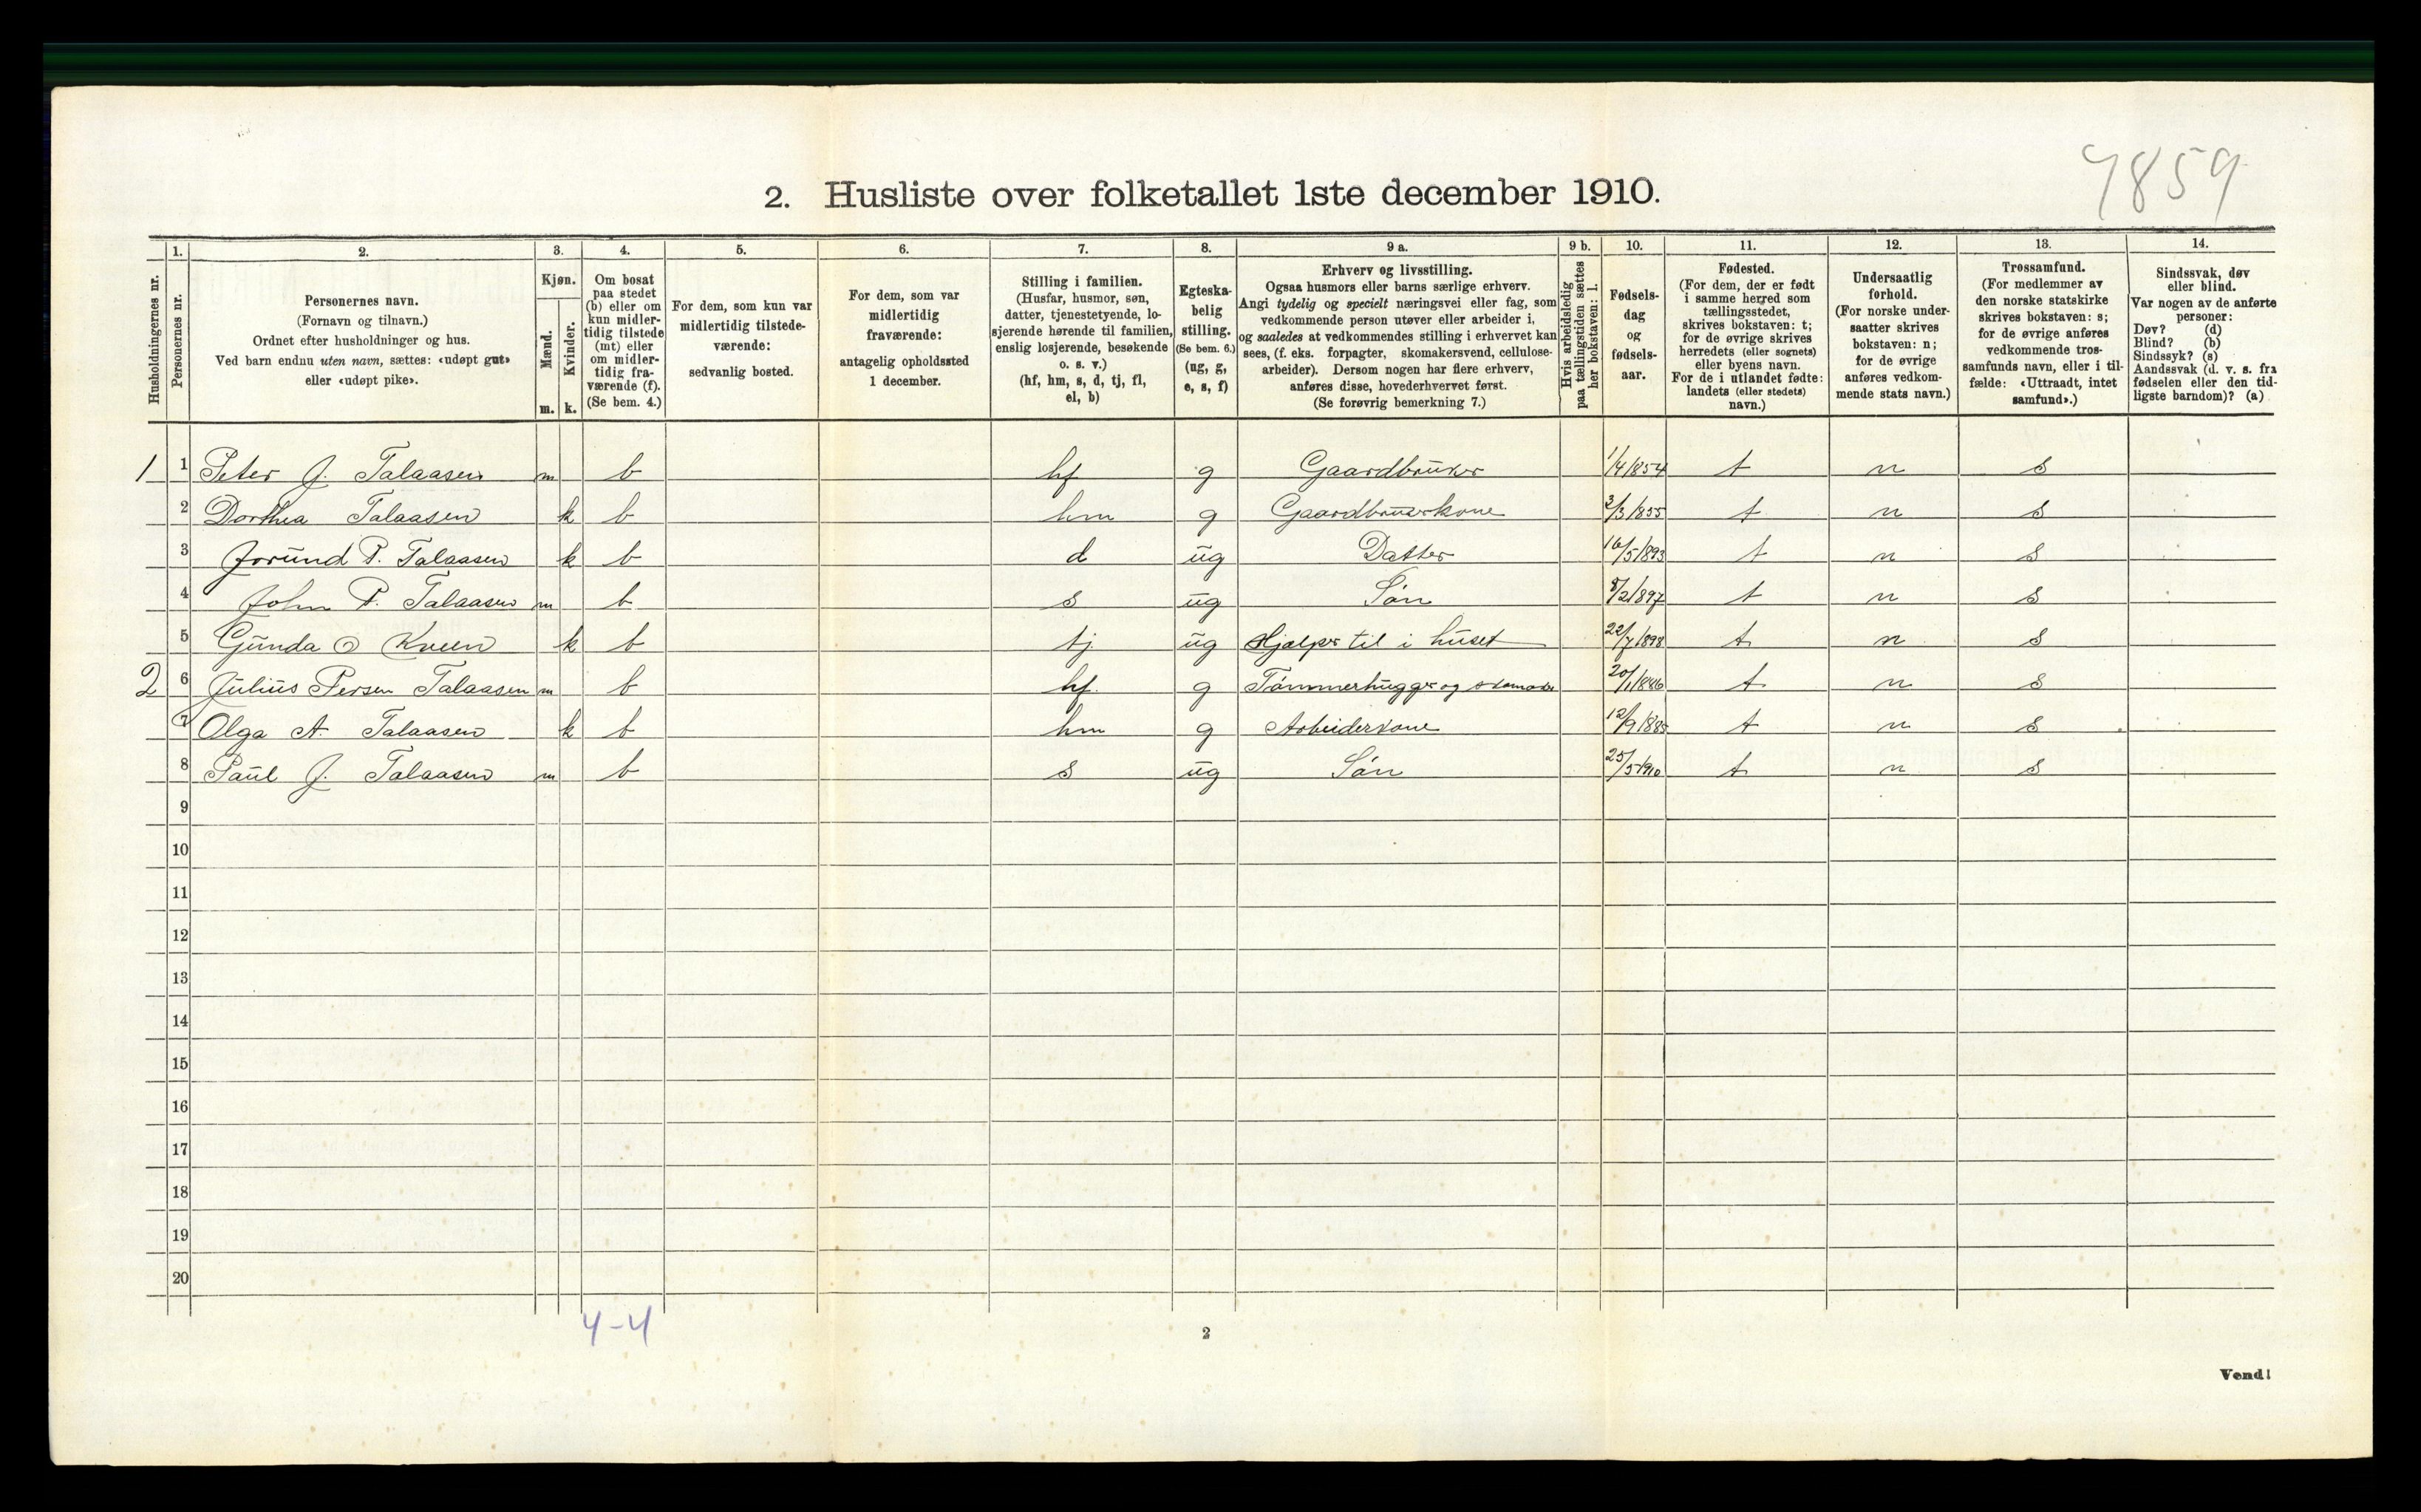 7859
2. Husliste over folketallet 1ste december 1910.
Husholdningernes nr.
1.
Personernes nr.
2.
Personernes navn.
(Fornavn og tilnavn.)
Ordnet efter husholdninger og hus.
Ved barn endnu uten navn, sættes: «udøpt gut»
eller «udøpt pike».
3.
Kjøn.
Mænd.
Kvinder.
m. k.
4.
Om bosat
paa stedet
(b) eller om
kun midler-
tidig tilstede
(mt) eller
om midler-
tidig fra-
værende (f).
(Se bem. 4.)
5.
For dem, som kun var
midlertidig tilstede-
værende:
sedvanlig bosted.
6.
For dem, som var
midlertidig
fraværende:
antagelig opholdssted
1 december.
7.
Stilling i familien.
(Husfar, husmor, søn,
datter, tjenestetyende, lo-
sjerende hørende til familien,
enslig losjerende, besøkende
o. s. v.)
(hf, hm, s, d, tj, fl,
el, b)
8.
Egteska-
belig
stilling.
(Se bem. 6.)
(ug, g,
e, s, f)
9 a.
Erhverv og livsstilling.
Ogsaa husmors eller barns særlige erhverv.
Angi tydelig og specielt næringsvei eller fag, som
vedkommende person utøver eller arbeider i,
og saaledes at vedkommendes stilling i erhvervet kan
sees, (f. eks. forpagter, skomakersvend, cellulose-
arbeider). Dersom nogen har flere erhverv,
anføres disse, hovederhvervet først.
(Se forøvrig bemerkning 7.)
9 b.
Hvis arbeidsledig
paa tællingstiden sættes
her bokstaven: l.
10.
Fødsels-
dag
og
fødsels-
aar.
11.
Fødested.
(For dem, der er født
i samme herred som
tællingsstedet,
skrives bokstaven: t;
for de øvrige skrives
herredets (eller sognets)
eller byens navn.
For de i utlandet fødte:
landets (eller stedets)
navn.)
12.
Undersaatlig
forhold.
(For norske under-
saatter skrives
bokstaven: n;
for de øvrige
anføres vedkom-
mende stats navn.)
13.
Trossamfund.
(For medlemmer av
den norske statskirke
skrives bokstaven: s;
for de øvrige anføres
vedkommende tros-
samfunds navn, eller i til-
fælde: «Uttraadt, intet
samfund».)
14.
Sindssvak, døv
eller blind.
Var nogen av de anførte
personer:
Døv? (d)
Blind? (b)
Sindssyk? (s)
Aandssvak (d. v. s. fra
fødselen eller den tid-
ligste barndom)? (a)
1 1 Peter J. Talaasen m b hf g Gaardbruker 1/4 1854 t n s
2 Dorthea Talaasen k b hm g Gaardbrukerkone 3/3 1855 t n s
3 Jorund P. Talaasen k b d ug Datter 16/5 1893 t n s
4 John P. Talaasen m b s ug Søn 8/2 1897 t n s
5 Gunda O Kveen k b tj ug Hjælper til i huset 22/7 1898 t n s
2 6 Julius Persen Talaasen m b hf g Tømmerhugger og skomaker 20/1 1886 t n s
7 Olga A. Talaasen k b hm g Arbeiderkone 12/9 1885 t n s
8 Paul J. Talaasen m b s ug Søn 25/5 1910 t n s
9
10
11
12
13
14
15
16
17
18
19
20
4-4
2
Vend!